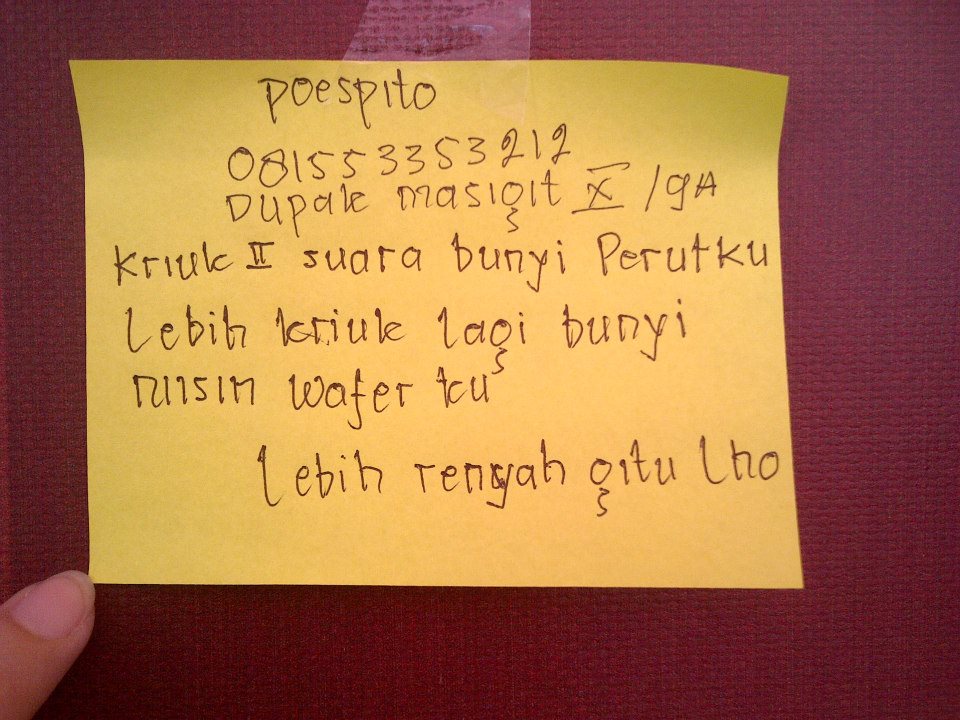 poespito
081553353212
Dupak masigit X /9A
kriuk II suara bunyi Perutku
Lebih kriuk lagi bunyi
nissin wafer ku
Lebih renyah gitu Lho